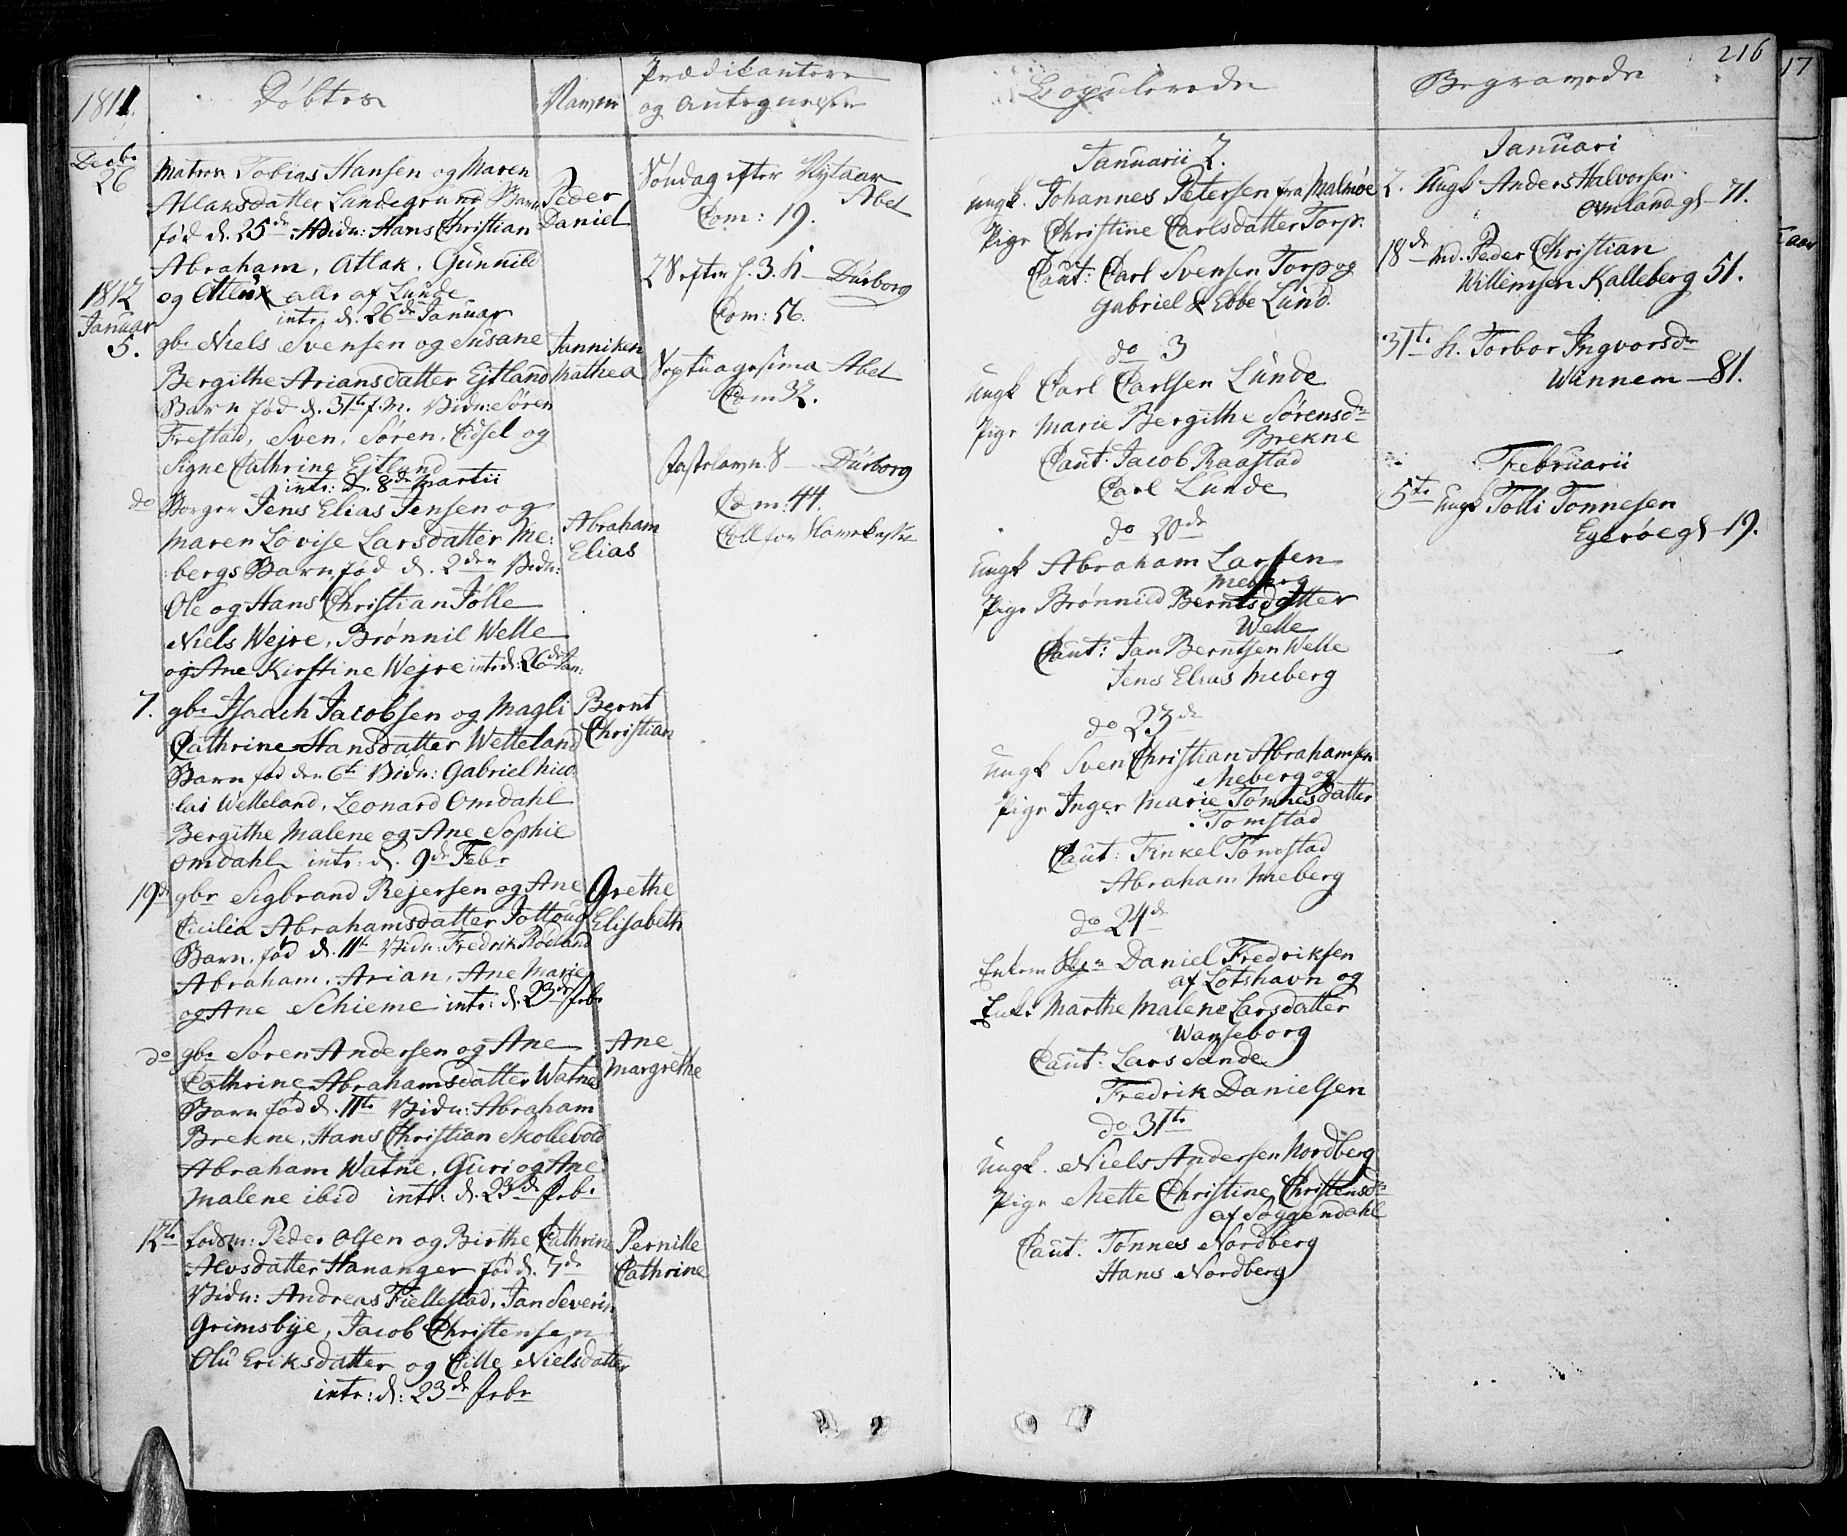 1811.
Døbte
Navne
Prædikantere
og Antegnelse
Decbr
26
Matros Tobias Hansen og Maren
Atlaksdatter Lundegrund Barn
fød d. 25de Vidn: Hans Christian
Abraham, Atlak, Gunnild
og alle af Lunde
intr. d. 26de Januar
Peder
Daniel
1812
Januar
5.
gbr Niels Svensen og Susane
Bergithe Ariansdatter Ejtland
Barn fød d. 31te f.M. Vidn: Søren
Frestad, Sven, Søren, Eidsel og
Signe Cathrine Ejtland
intr: d. 8de Martii
Janniken
Mathea
do
Borger Jens Elias Jensen og
Maren Lovise Larsdatter Me:
bergs Barn fød d. 2den Vidn:
Ole og Hans Christian Jølle
Niels Wejre, Brønnil Welle
og Ane Kirstine Wejre intr d: 26de Jan:
Abraham
Elias
7.
gbr Isaach Jacobsen og Magli
Cathrine Hansdatter Welleland
Barn fød den 6te Vidn: Gabriel Nico:
lai Welleland, Leonard Omdahl
Bergithe Malene og Ane Sophie
Omdahl intr: d. 9de Febr
Bernt
Christian
19de
gbr Sigbrand Rejersen og Ane
Cicilia Abrahamsdatter Jottoug
Barn, fød d. 11te Vidn: Fredrik Rødland
Abraham, Arian, Ane Marie
og Ane Schieme intr: d. 23de Febr
Grethe
Elisabeth
do
gbr Søren Andersen og Ane
Cathrine Abrahamsdatter Watne
Barn fød d. 11te Vidn: Abraham
Brekne, Hans Christian Mollevold
Abraham Watne, Guri og Ane
Malene ibid intr: d. 23de Febr
Ane
Margrethe
12te
fødsm: Peder Olsen og Birthe Cathrine
Alvsdatter Hananger fød d. 7de
Vidn: Andreas Fiellestad, Jan Severin
Grimsbye, Jacob Christensen
Olu Eriksdatter og Cille Nielsdatter
intr: d: 23de Febr
Pernille
Cathrine
Søndag efter Nytaar
Abel
Com: 19.
2 S efter h. 3. K Dürborg
Com: 56.
Septuagesima Abel
Com 32.
Fastelavns S Dürborg
Com: 44.
Coll for
Copulerede
Januarii 2.
Ungk. Johannes Petersen fra Malmøe
Pige Christine Carlsdatter Torp.
Caut: Carl Svensen Torp og
Gabriel Ebbe Lund.
do 3
Ungk Carl Carlsen Lunde
Pige Marie Bergithe Sørensdr
Brekne
Caut. Jacob Raastad
Carl Lunde
do 20de
Ungk Abraham Larsen
Meberg
Pige Brønnild Berntsdatter
Welle
Caut: Jan Berntsen Welle
Jens Elias Meberg
do 23de
Ungk Sven Christian Abrahamsen
Meberg og
Pige Inger Marie Tønnesdatter
Tomstad
Caut: Finkel Tomstad
Abraham Meberg
do 24de
Enkem Daniel Fredriksen
af Lotshavn og
Enke Marthe Malene Larsdatter
Wanseborg
Caut: Lars Sande
Fredrik Danielsen
do 31te
Ungk. Niels Andersen Nordberg
Pige Mette Christine Christensdr
af Soggendahl
Caut. Tønnes Nordberg
Hans Nordberg
216
Begravede
Januari
2. Ungk Anders Halvorsen
Ovnland gl 71.
18de Md. Peder Christian
Willemsen Kalleberg 51.
31te h. Torbor Ingvorsdr
Wannem 81.
Februarii
5te Ungk Tolli Tonnesen
Egerøe gl 19.
17
aar